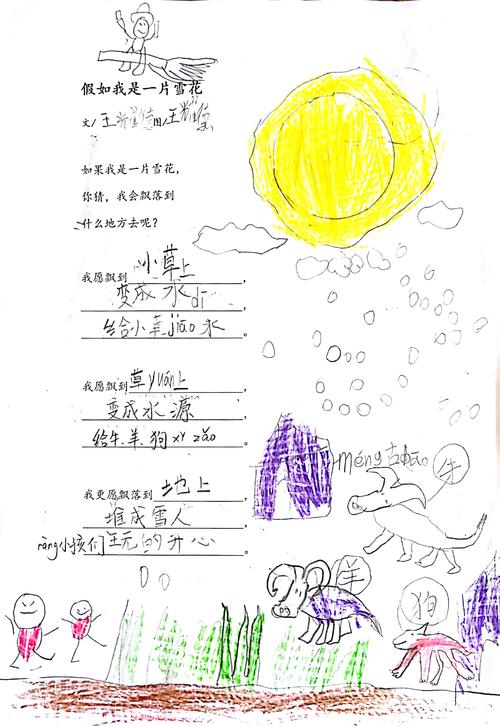 假如我是一片雪花
文/王耀德图/王耀德
如果我是一片雪花，
你猜，我会飘落到
什么地方去呢？
我愿飘到小草上，
变成水dī，
给小草jiāo水。
我愿飘到草yuán上，
变成水源，
给牛.羊.狗xǐ zǎo。
我更愿飘落到地上，
堆成雪人，
ràng小孩们玩的开心。
méng古bāo
牛
羊
狗